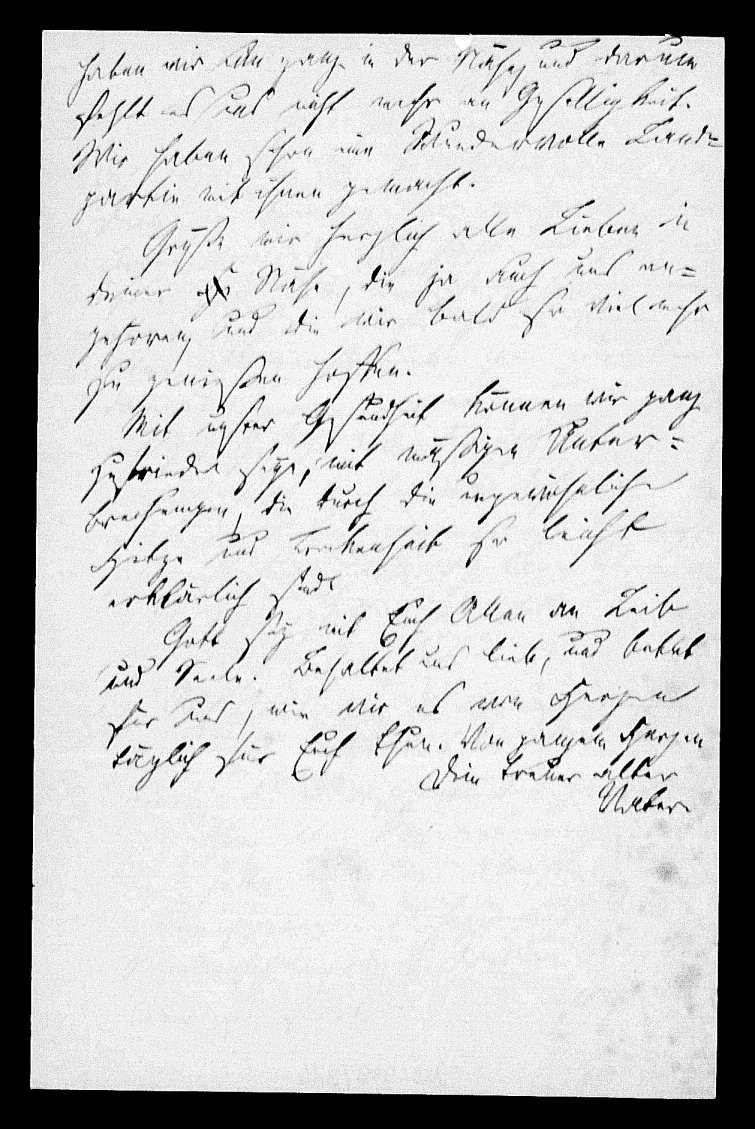 haben wir nun ganz in der Nähe, und darum
fehlt es uns nicht mehr an Geselligkeit.
Wir haben schon eine Wundervolle Land=
partie mit ihnen gemacht.
Grüße mir herzlich alle Lieben in
deiner Nähe, die ja auch uns an=
gehören, und die wir bald so viel mehr
zu genießen hoffen.
Mit unsrer Gesundheit können wir ganz
zufrieden seyn, mit mäßigen Unter=
brechungen, die durch die ungewöhnliche
Hitze und Trockenheit so leicht
erklärlich sind.
Gott sey mit Euch Allen an Leib
und Seele. Behaltet uns lieb, und betet
für uns, wie wir es von Herzen
täglich für Euch thun. Von ganzem Herzen
Dein treuer alter
Vater.